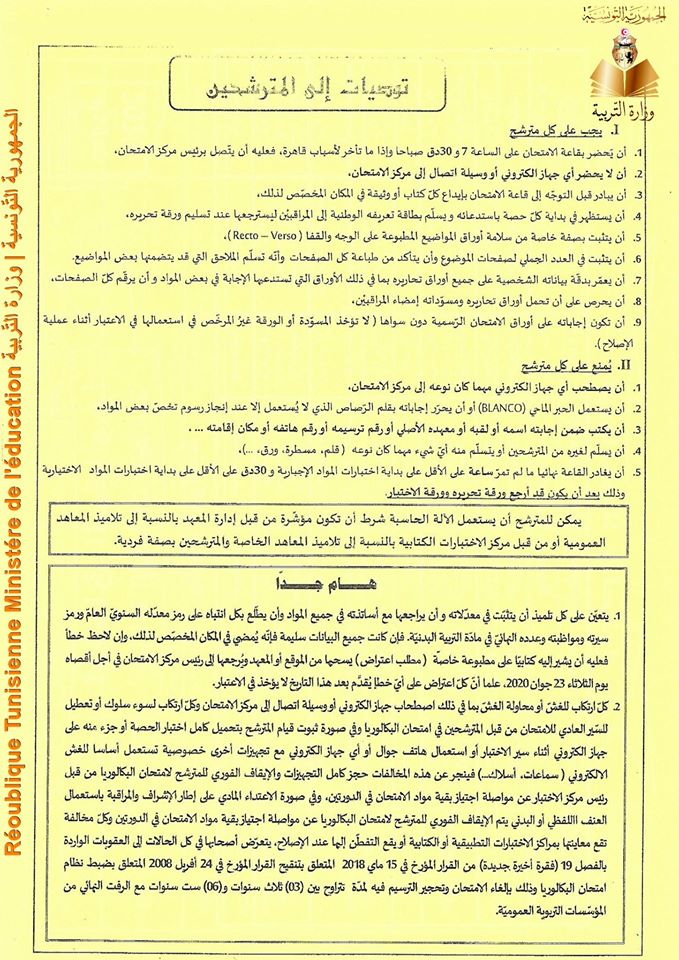 الجمهورية التونسية
وزارة التربية
الجمهورية التونسية | وزارة التربية Réoublique Tunisienne Ministére de l'éducation
توصيات إلى المترشحين
I. يجب على كل مترشح
1. أن يَحضر بقاعة الامتحان على الساعة 7 و 30دق صباحا وإذا ما تأخر لأسباب قاهرة، فعليه أن يتّصل برئيس مركز الامتحان،
2. أن لا يحضر أي جهاز الكتروني أو وسيلة اتصال إلى مركز الامتحان،
3. أن يبادر قبل التوجّه إلى قاعة الامتحان بإيداع كلّ كتاب أو وثيقة في المكان المخصّص لذلك،
4. أن يستظهر في بداية كلّ حصة باستدعائه و يسلّم بطاقة تعريفه الوطنية إلى المراقبيْن ليسترجعها عند تسليم ورقة تحريره،
5. أن يتثبت بصفة خاصة من سلامة أوراق المواضيع المطبوعة على الوجه والقفا ( Recto – Verso )،
6. أن يتثبت في العدد الجملي لصفحات الموضوع وأن يتأكد من طباعة كل الصفحات وأنّه تسلّم الملاحق التي قد يتضمنها بعض المواضيع.
7. أن يعمّر بدقّة بياناته الشخصية على جميع أوراق تحاريره بما في ذلك الأوراق التي تستدعيها الإجابة في بعض المواد و أن يرقّم كلّ الصفحات،
8. أن يحرص على أن تحمل أوراق تحاريره ومسوّداته إمضاء المراقبيْن،
9. أن تكون إجاباته على أوراق الامتحان الرّسمية دون سواها ( لا تؤخذ المسوّدة أو الورقة غيرُ المرخّص في استعمالها في الاعتبار أثناء عملية
الإصلاح ).
II. يُمنع على كل مترشح
1. أن يصطحب أي جهاز الكتروني مهما كان نوعه إلى مركز الامتحان،
2. أن يستعمل الحبر الماحي (BLANCO) أو أن يحرّر إجاباته بقلم الرّصاص الذي لا يُستعمل إلا عند إنجاز رسوم تخصّ بعض المواد،
3. أن يكتب ضمن إجابته اسمه أو لقبه أو معهده الأصلي أو رقم ترسيمه أو رقم هاتفه أو مكان إقامته ... .
4. أن يسلّم لغيره من المترشحين أو يتسلّم منه أيّ شيء مهما كان نوعه ( قلم، مسطرة، ورق، ...)،
5. أن يغادر القاعة نهائيا ما لم تمرّ ساعة على الأقل على بداية اختبارات المواد الإجبارية و 30دق على الأقل على بداية اختبارات المواد الاختيارية
وذلك بعد أن يكون قد أرجع ورقة تحريره وورقة الاختبار.
يمكن للمترشح أن يستعمل الآلة الحاسبة شرط أن تكون مؤشّرة من قبل إدارة المعهد بالنسبة إلى تلاميذ المعاهد
العمومية أو من قبل مركز الاختبارات الكتابية بالنسبة إلى تلاميذ المعاهد الخاصة والمترشحين بصفة فردية.
هـــام جـــدّا
1. يتعيّن على كل تلميذ أن يتثبّت في معدلاته و أن يراجعها مع أساتذته في جميع المواد وأن يطّلع بكل انتباه على رمز معدله السنويّ العامّ ورمز
سيرته ومواظبته وعدده النهائيّ في مادّة التربية البدنيّة. فإن كانت جميع البيانات سليمة فإنّه يُمضي في المكان المخصّص لذلك، وإن لاحظ خطأ
فعليه أن يشير إليه كتابيّا على مطبوعة خاصّة ( مطلب اعتراض) يسحبها من الموقع أو المعهد ويُرجعها إلى رئيس مركز الامتحان في أجل أقصاه
يوم الثلاثاء 23 جوان 2020، علما أنّ كلّ اعتراض على أيّ خطإ يُقدّم بعد هذا التاريخ لا يؤخذ في الاعتبار.
2. كلّ ارتكاب للغشّ أو محاولة الغشّ بما في ذلك اصطحاب جهاز الكتروني أو وسيلة اتصال إلى مركز الامتحان وكلّ ارتكاب لسوء سلوك أو تعطيل
للسّير العادي للامتحان من قبل المترشحين في امتحان البكالوريا وفي صورة ثبوت قيام المترشح بتحميل كامل اختبار الحصة أو جزء منه على
جهاز الكتروني أثناء سير الاختبار أو استعمال هاتف جوال أو أي جهاز الكتروني مع تجهيزات أخرى خصوصية تستعمل أساسا للغش
الالكتروني ( سماعات، أسلاك...) فينجر عن هذه المخالفات حجز كامل التجهيزات والإيقاف الفوري للمترشح لامتحان البكالوريا من قبل
رئيس مركز الاختبار عن مواصلة اجتياز بقية مواد الامتحان في الدورتين، وفي صورة الاعتداء المادي على إطار الإشراف والمراقبة باستعمال
العنف اللفظي أو البدني يتم الإيقاف الفوري للمترشح لامتحان البكالوريا عن مواصلة اجتياز بقية مواد الامتحان في الدورتين وكلّ مخالفة
تقع معاينتها بمراكز الاختبارات التطبيقية أو الكتابية أو يقع التفطّن إليها عند الإصلاح، يتعرّض أصحابها في كلّ الحالات إلى العقوبات الواردة
بالفصل 19 (فقرة أخيرة جديدة) من القرار المؤرخ في 15 ماي 2018 المتعلق بتنقيح القرار المؤرخ في 24 أفريل 2008 المتعلق بضبط نظام
امتحان البكالوريا وذلك بإلغاء الامتحان وتحجير الترسيم فيه لمدّة تتراوح بين (03) ثلاث سنوات و(06) ست سنوات مع الرفت النهائي من
المؤسّسات التربوية العموميّة.